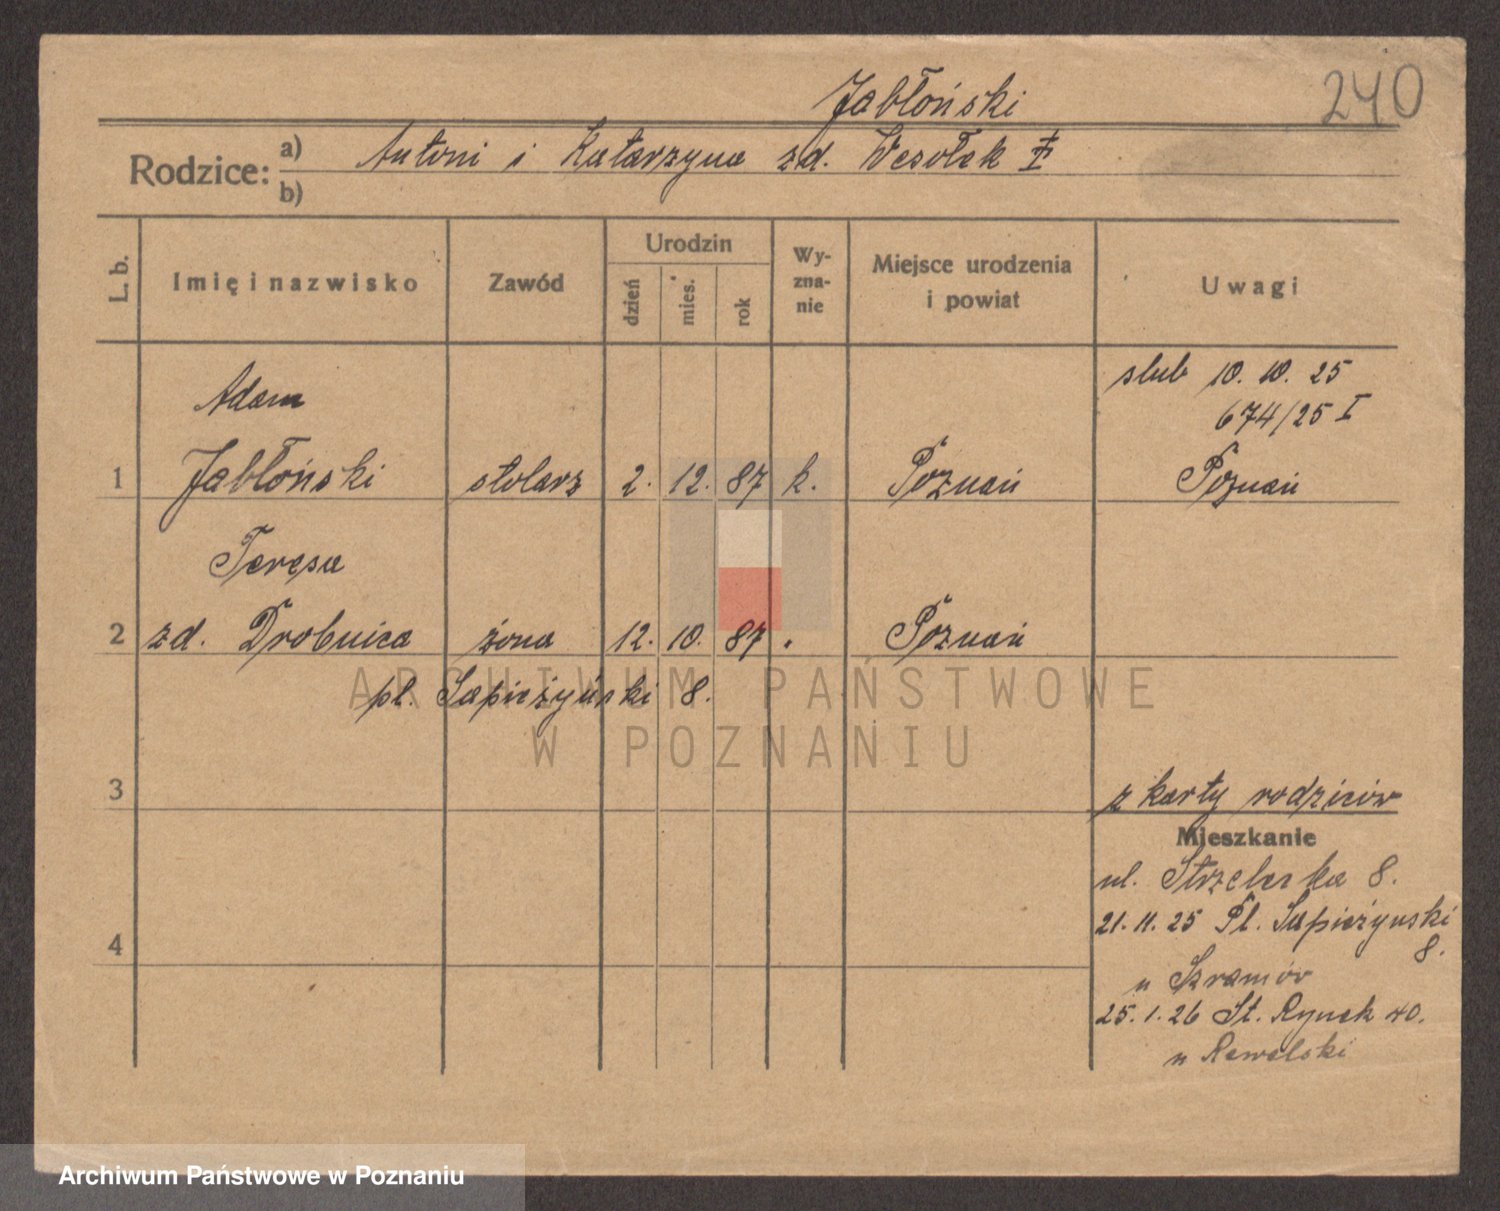 240
Jabłoński
Rodzice: a) Antoni i Katarzyna zd. Wesołek ‡
b)
L. b. Imię i nazwisko Zawód Urodzin dzień mies. rok Wyznanie Miejsce urodzenia i powiat Uwagi
Adam
slub 10. 10. 25
674/25 I
1 Jabłoński stolarz 2. 12. 87 k. Poznań Poznań
Teresa
2 zd. Drobnica żona 12. 10. 87 . Poznań
pl. Sapieżyński 8.
ARCHIWUM PAŃSTWOWE
W POZNANIU
3
z karty rodziców
Mieszkanie
ul. Strzelecka 8.
21. 11. 25 Pl. Sapieżynski
8.
4
u
25. 1. 26 St. Rynek 40.
u
Archiwum Państwowe w Poznaniu